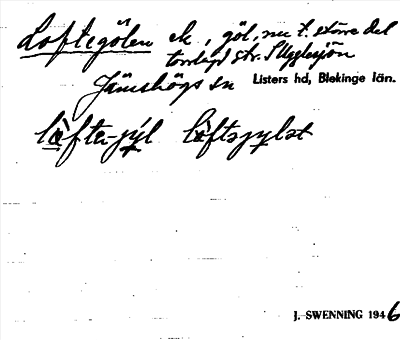 Loftegölen ek, göl, nu t. större del
torrlagd str. S Ugglesjön
Jämshögs sn Listers hd, Blekinge län.
lòfte-jýl lòftajylæt
J. SWENNING 1946